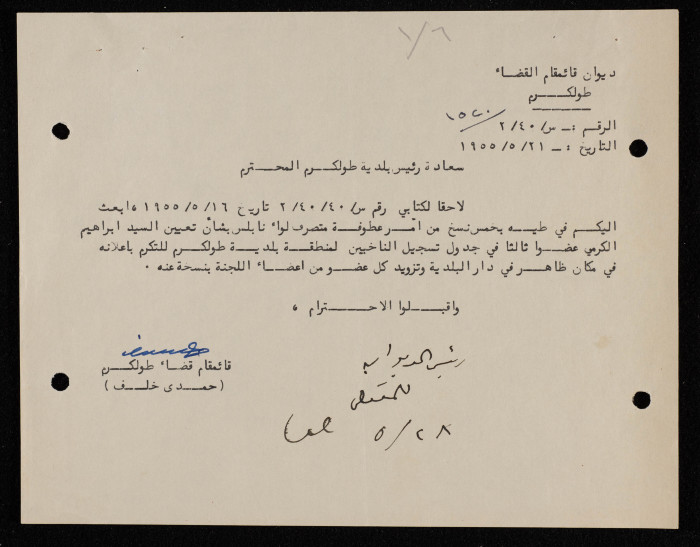 ١/٦
ديوان قائمقام القضاء
طولكرم
الرقم :ـ س/٤٠/٢
التاريخ :ـ ١٩٥٥/٥/٢١
سعادة رئيس بلدية طولكرم المحترم
لاحقا لكتابي رقم س/٤٠/٤٠/٢ تاريخ ١٩٥٥/٥/١٦ ، ابعث
اليكم في طيه بخمس نسخ من امر عطوفة متصرف لواء نابلس بشأن تعيين السيد ابراهيم
الكرمي عضوا ثالثا في جدول تسجيل الناخبين لمنطقة بلدية طولكرم للتكرم باعلانه
في مكان ظاهر في دار البلدية وتزويد كل عضو من اعضاء اللجنة بنسخة عنه .
واقبلوا الاحترام ،
قائمقام قضاء طولكرم
(حمدي خلف)
رئيس الديوان
٥/٢٨